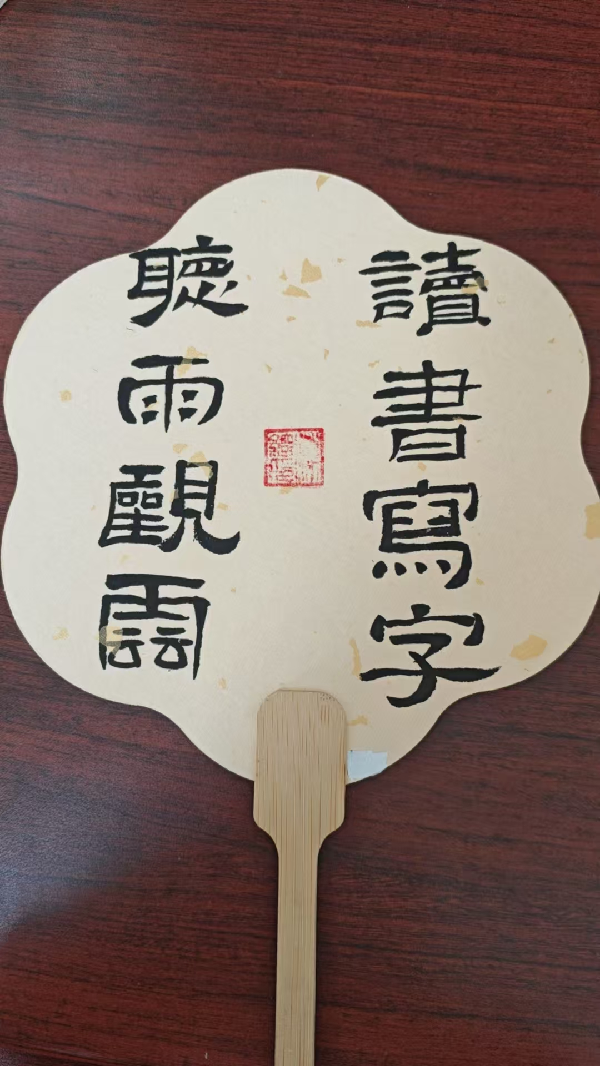 讀書寫字
聽雨觀雲